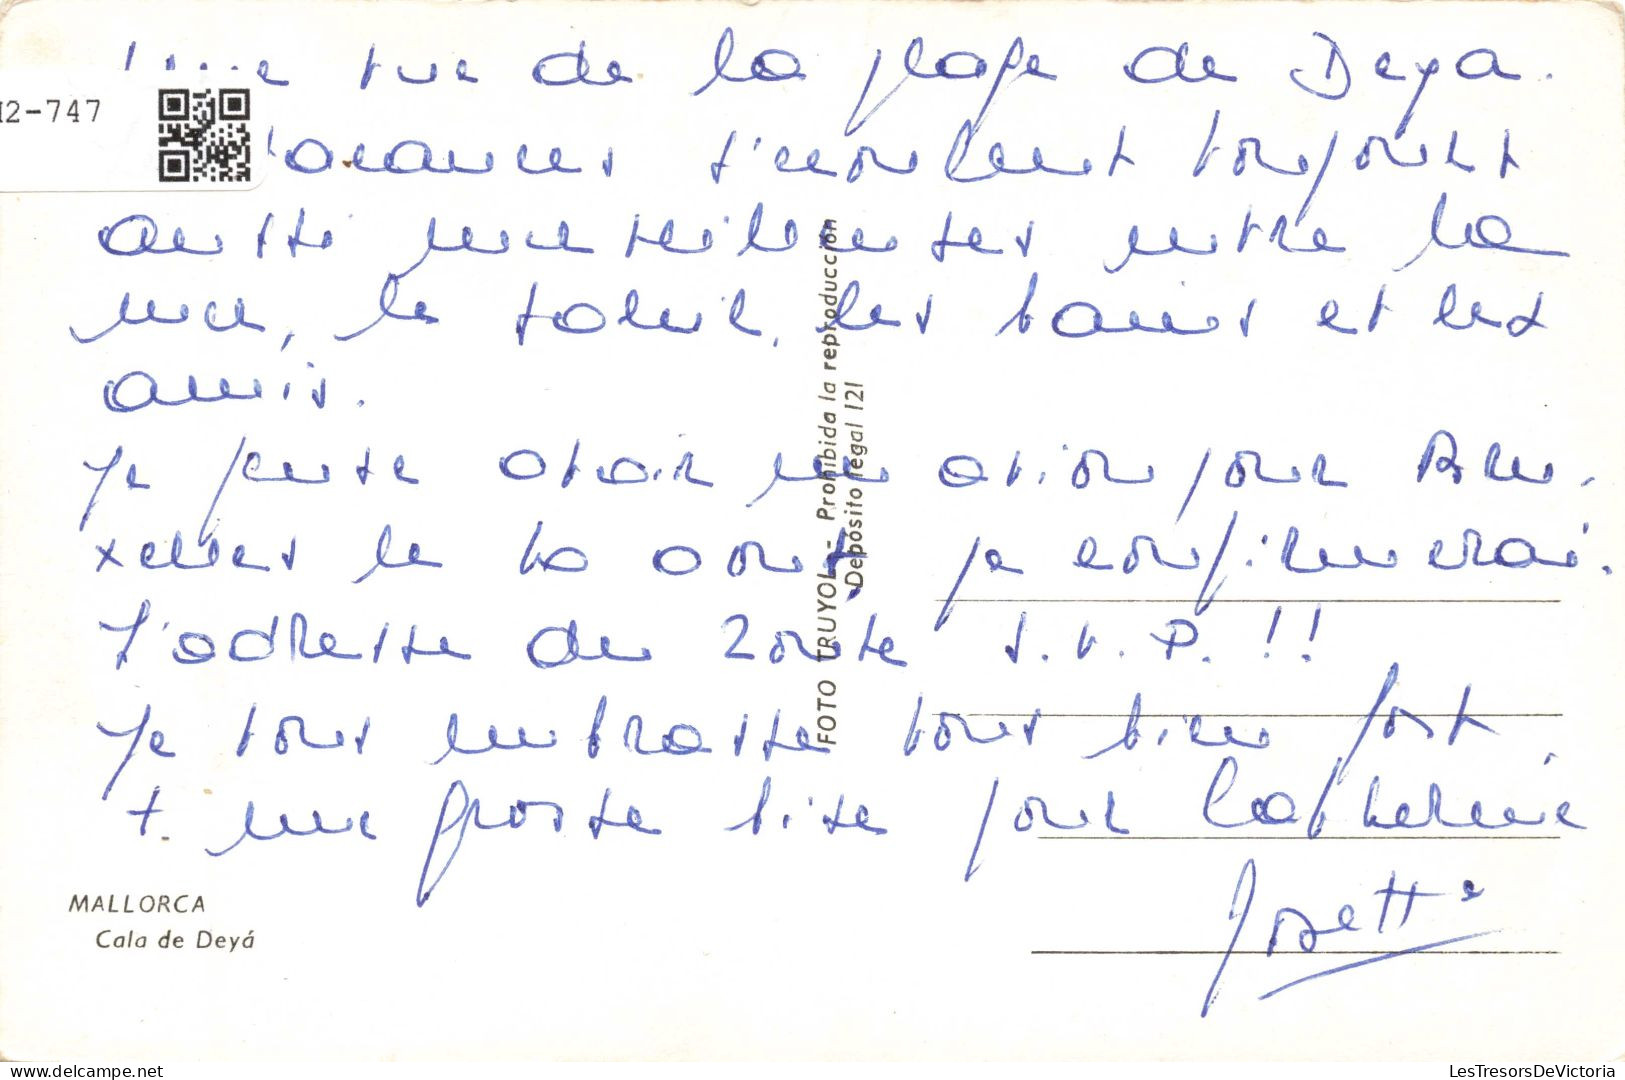 vue de la plage de Deya.
I2-747
vacances s'écoulent toujours
aussi merveilleuses entre la
mer, le soleil, les bains et les
amis.
Je pense avoir un avion pour Bru-
xelles le 20 août, je confirmerai.
L'adresse de Zoute S.V.P.!!
Je vous embrasse tous bien fort,
+ une grosse bise pour Catherine
Josette
MALLORCA
Cala de Deyá
FOTO TRUYOL - Prohibida la reproducción
Depósito legal 121
LesTresorsDeVictoria
delcampe.net